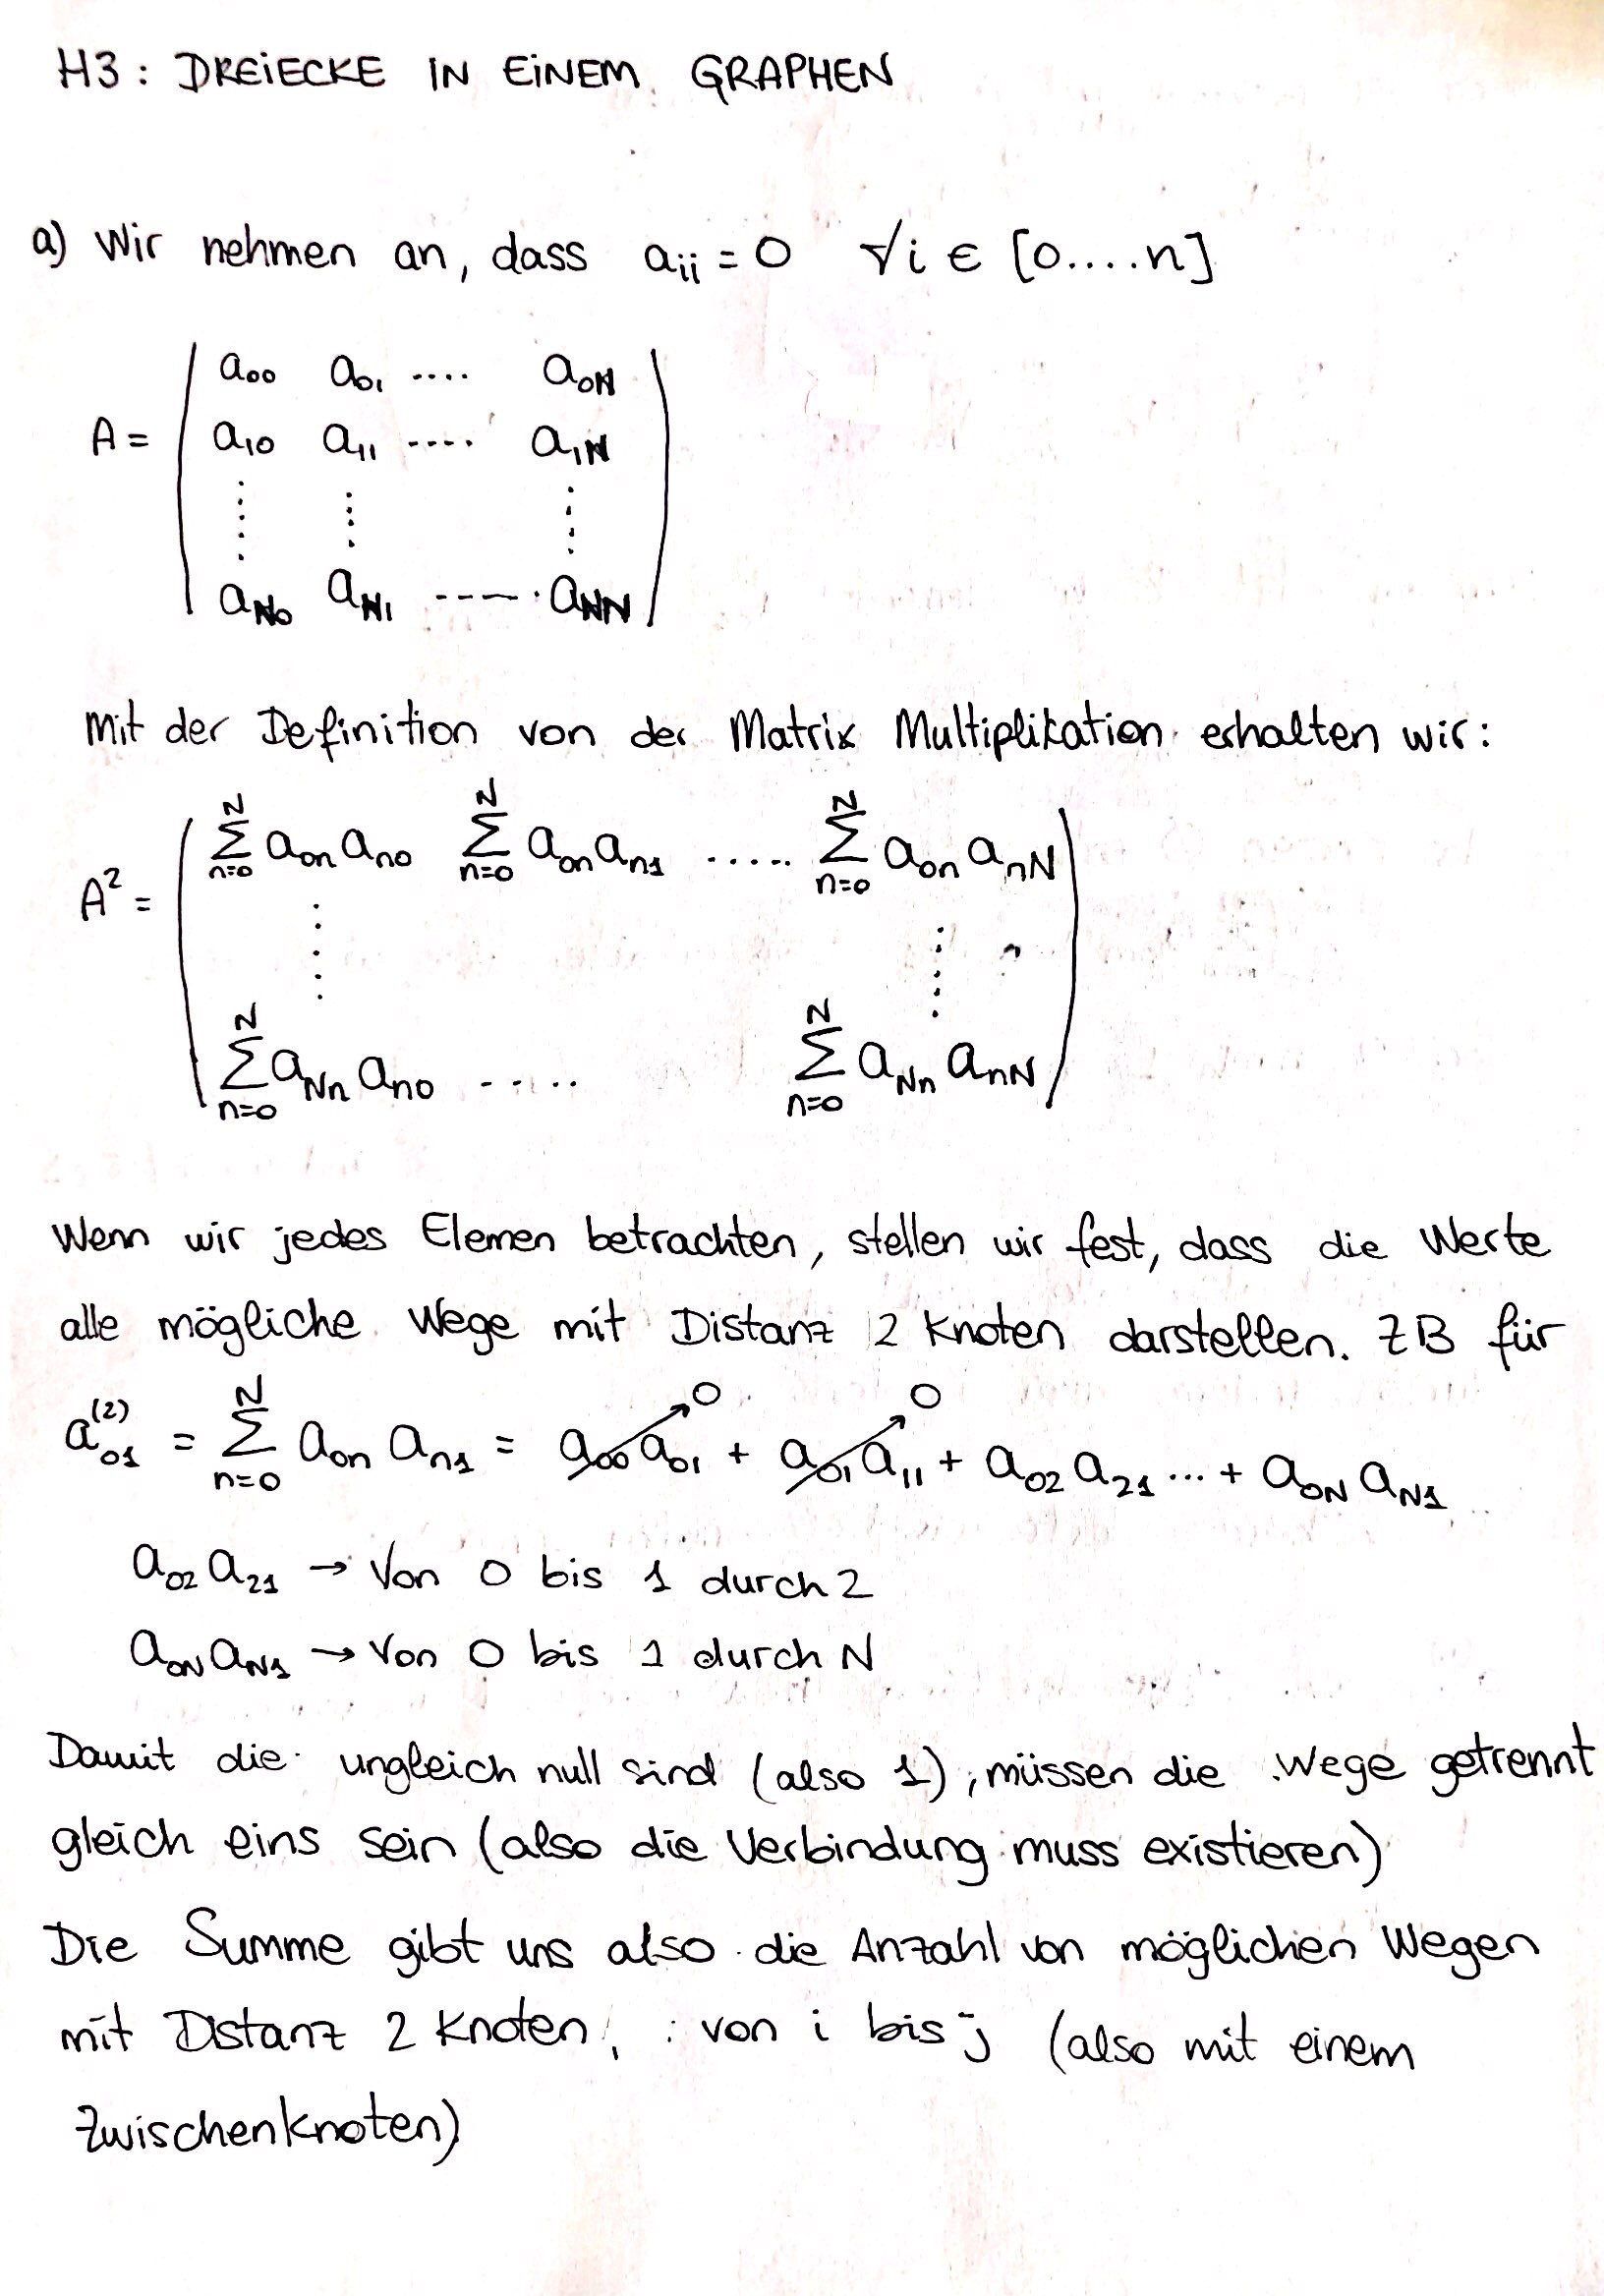 H3: DREIECKE IN EINEM GRAPHEN
a) Wir nehmen an, dass aᵢᵢ = 0 ∀i ∈ [0....n]
A = ( a₀₀ a₀₁ .... a₀N
a₁₀ a₁₁ .... a₁N
⋮ ⋮ ⋮
aN₀ aN₁ ------· aNN )
Mit der Definition von der Matrix Multiplikation erhalten wir:
A² = ( ∑ₙ₌₀ᴺ a₀ₙ aₙ₀ ∑ₙ₌₀ᴺ a₀ₙ aₙ₁ ..... ∑ₙ₌₀ᴺ a₀ₙ aₙN
⋮ ⋮
∑ₙ₌₀ᴺ aNₙ aₙ₀ ..... ∑ₙ₌₀ᴺ aNₙ aₙN )
Wenn wir jedes Elemen betrachten, stellen wir fest, dass die Werte
alle mögliche Wege mit Distanz 2 Knoten darstellen. ZB für
a₀₁⁽²⁾ = ∑ₙ₌₀ᴺ a₀ₙ aₙ₁ = a₀₀ a₀₁ → 0 + a₀₁ a₁₁ → 0 + a₀₂ a₂₁ ... + a₀N aN₁
a₀₂ a₂₁ → Von 0 bis 1 durch 2
a₀N aN₁ → Von 0 bis 1 durch N
Damit die ungleich null sind (also 1), müssen die Wege getrennt
gleich eins sein (also die Verbindung muss existieren)
Die Summe gibt uns also die Anzahl von möglichen Wegen
mit Distanz 2 Knoten, von i bis j (also mit einem
Zwischenknoten)